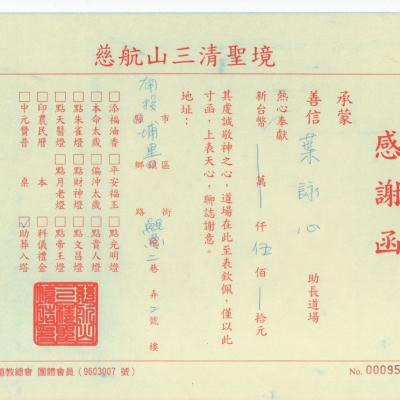 慈航山三清聖境
感謝函
承蒙
善信 葉詠心 助長道場
熱心奉獻
新台幣 萬 仟 伍 佰 拾元
其虔誠敬神之心，道場在此至表欽佩，僅以此
寸函，上表天心，聊誌謝意。
地址：
南投 縣市 埔里 鄉鎮區 路街 二巷 弄 2號 樓
□添福油香 □平安福玉 □點光明燈
□本命太歲 □偏沖太歲 □點貴人燈
□點朱雀燈 □點財神燈 □點文昌燈
□點天醫燈 □點月老燈 □點帝王燈
□印農民曆 本 □科儀禮金
□中元贊普 桌 ☑助葬入塔
道教總會 團體會員 (9603007 號)
No. 00095